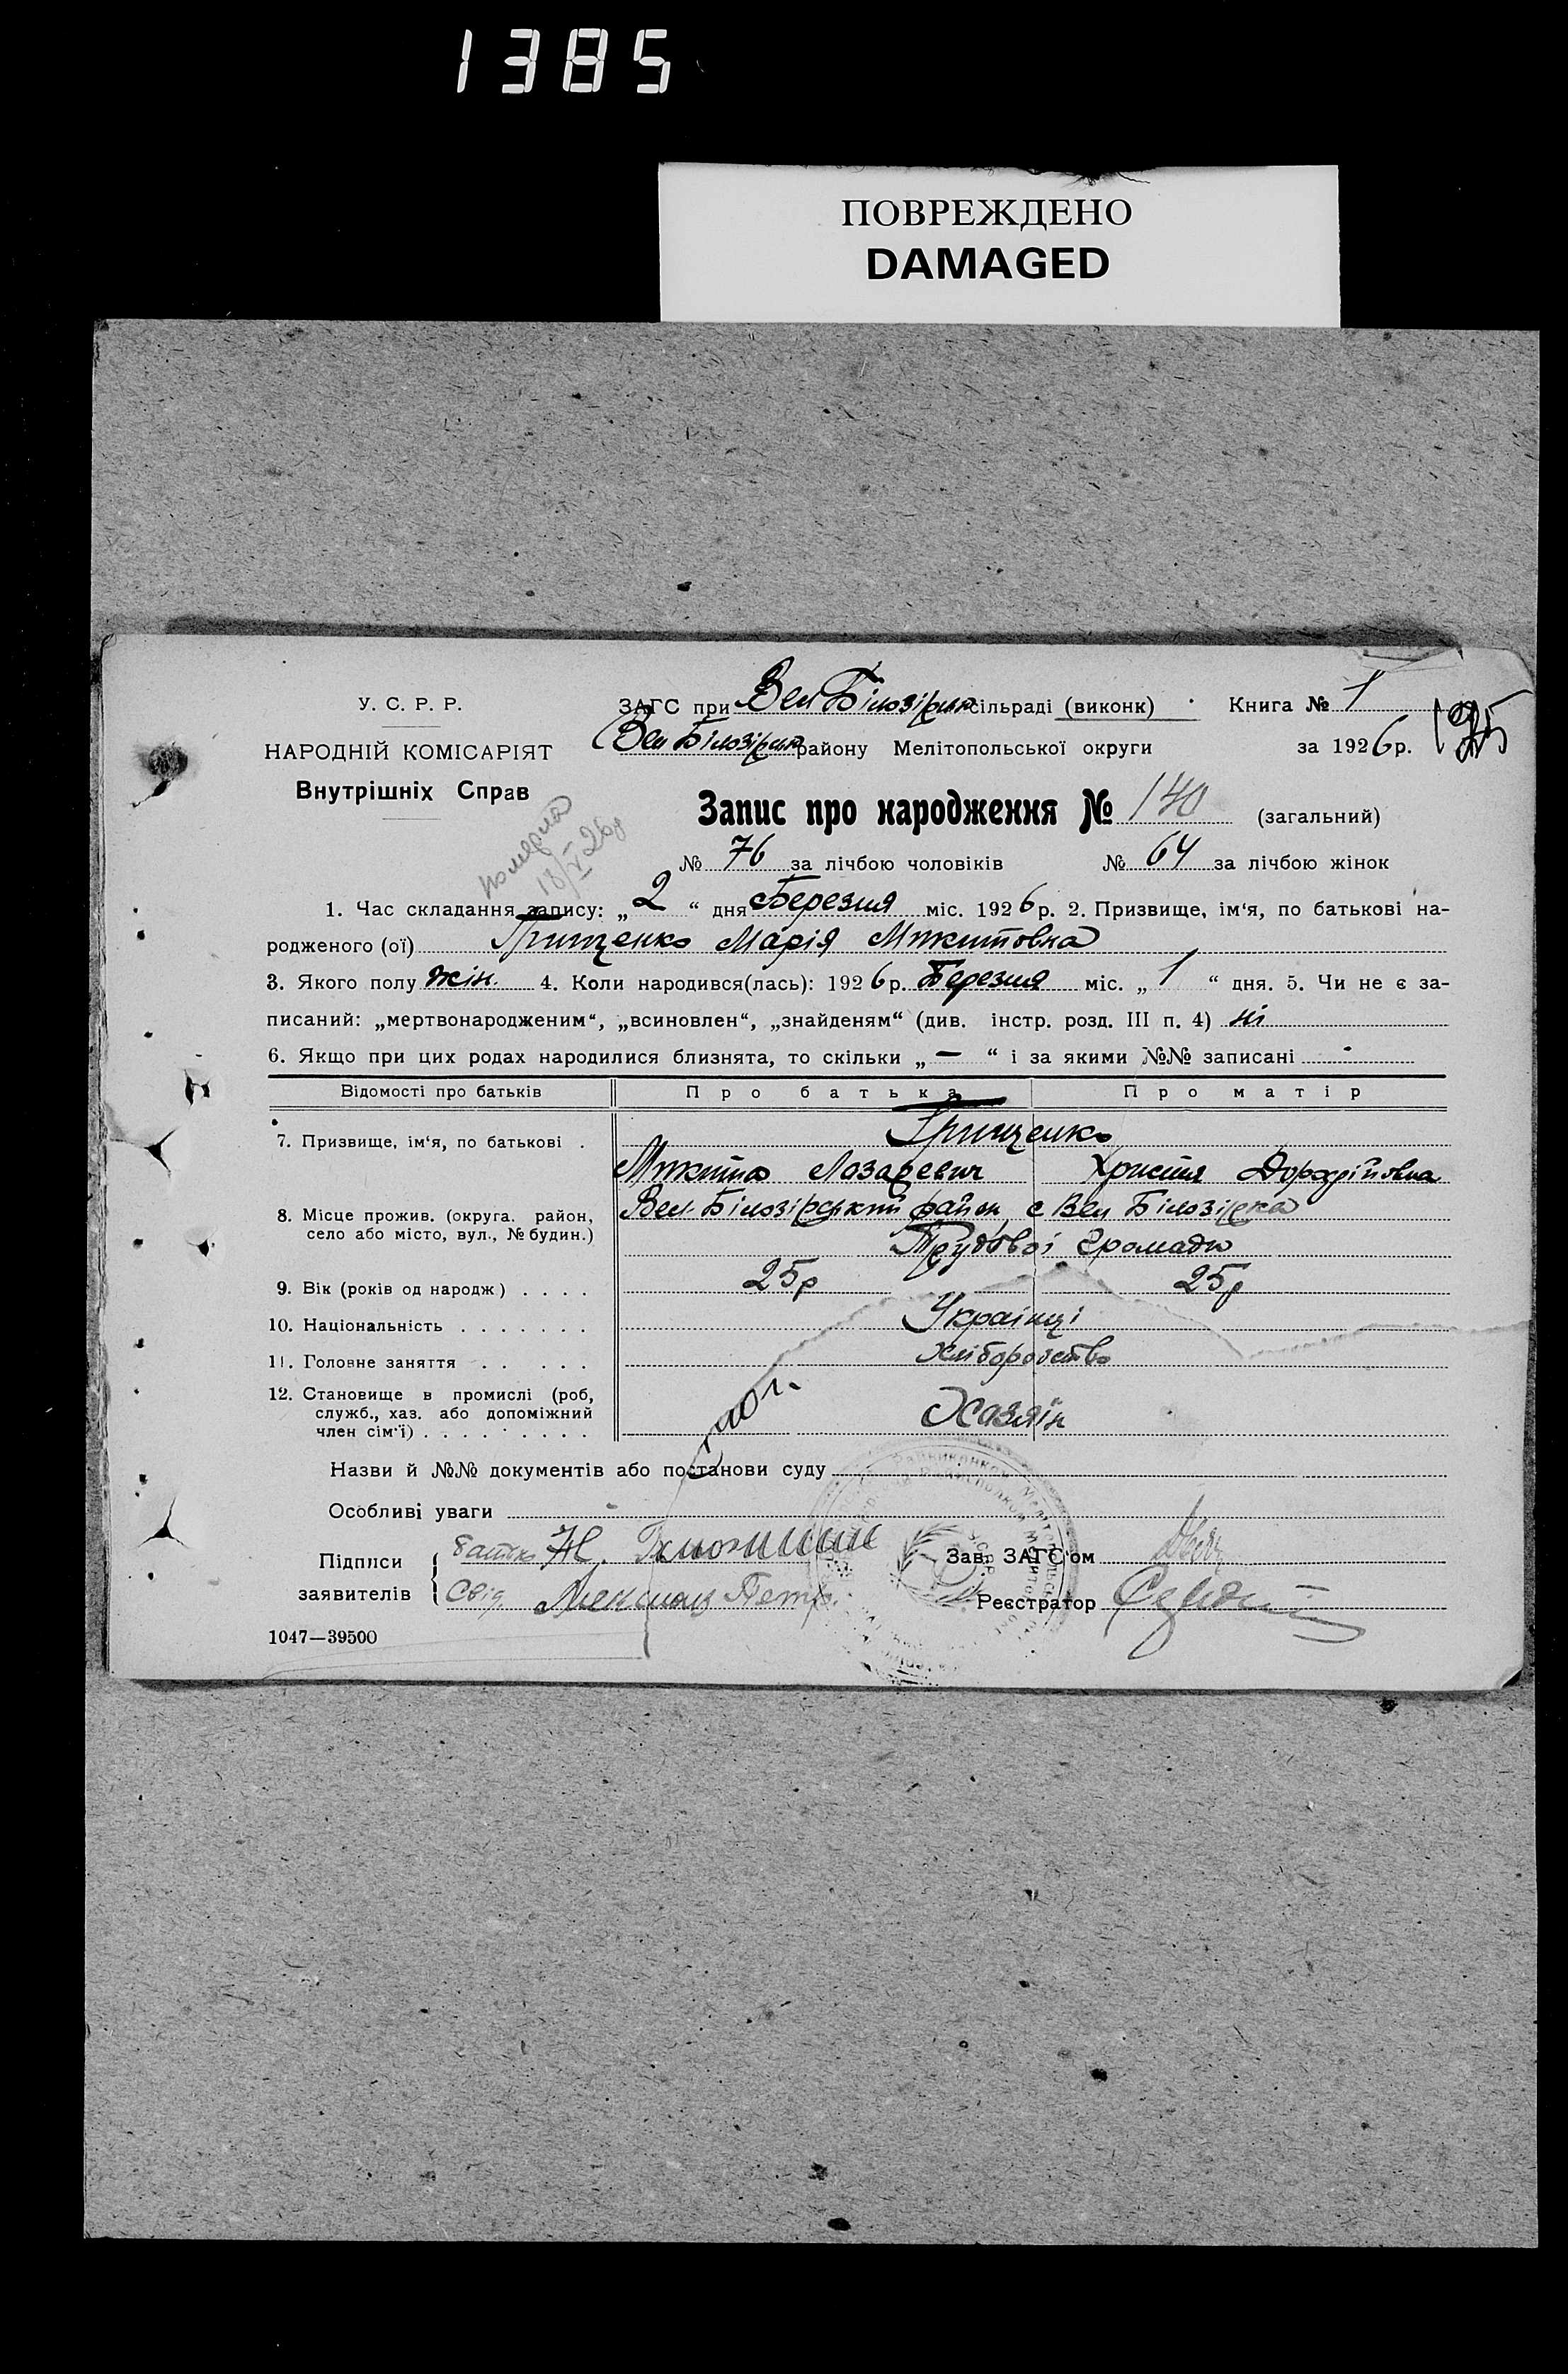 1385
ПОВРЕЖДЕНО
DAMAGED
У. С. Р. Р.
НАРОДНІЙ КОМІСАРІЯТ
Внутрішніх Справ
ЗАГС при Вел Білозірск сільраді (виконк) Книга № 1
Вел Білозірськ району Мелітопольської округи за 1926 р.
померла
18/V 26р
Запис про народження № 140 (загальний)
№ 76 за лічбою чоловіків № 64 за лічбою жінок
1. Час складання запису: „2“ дня Березня міс. 1926 р. 2. Призвище, ім‘я, по батькові на-
родженого (ої) Грищенко Марія Микитовна
3. Якого полу жін. 4. Коли народився(лась): 1926 р. Березня міс. „1“ дня. 5. Чи не є за-
писаний: „мертвонародженим“, „всиновлен“, „знайденям“ (див. інстр. розд. III п. 4) ні
6. Якщо при цих родах народилися близнята, то скільки „—“ і за якими №№ записані -
Відомості про батьків Про батька Про матір
7. Призвище, ім‘я, по батькові . Грищенко
Микита Лазаревич Христя
8. Місце прожив. (округа. район, село або місто, вул., № будин.) Вел. Білозірський район, с Вел Білозірка
Трудової громади
9. Вік (років од народж) . . . . 25р 25р
10. Національність . . . . . . . Українці
11. Головне заняття . . . . . Хліборобство
12. Становище в промислі (роб, служб., хаз. або допоміжний член сім‘ї) . . . . . . . . . Хазяїн
Назви й №№ документів або постанови суду
Особливі уваги
Підписи заявителів { батько Н.
Свід. Петр.
Зав. ЗАГС‘ом
Реєстратор
1047—39500